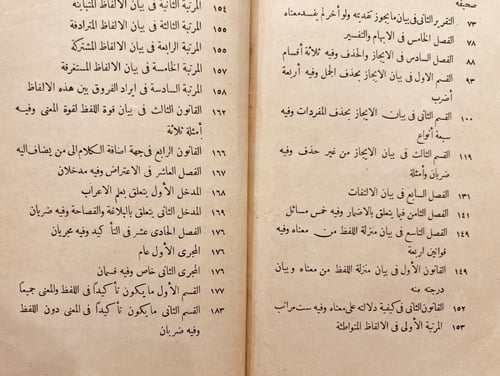 صحيفه
٧٣ التقرير الثانى فى بيان مايجوز تقديمه ولو أخر لم يفسد معناه
٧٨ الفصل الخامس فى الابهام والتفسير
٩٣ الفصل السادس فى الايجاز والحذف وفيه ثلاثة أقسام
القسم الاول فى بيان الايجاز بحذف الجمل وفيه أربعة
أضرب
١٠٠ القسم الثانى فى بيان الايجاز بحذف المفردات وفيه
سبعة أنواع
١١٩ القسم الثالث فى بيان الايجاز من غير حذف وفيه
ضربان وأمثلة
١٣١ الفصل السابع فى بيان الالتفات
١٤١ الفصل الثامن فيما يتعلق بالاضمار وفيه خمس مسائل
١٤٩ الفصل التاسع فى بيان منزلة اللفظ من معناه وفيه
قوانين اربعة
١٤٩ القانون الأول فى بيان منزلة اللفظ من معناه وبيان
درجته منه
١٥٢ القانون الثانى فى كيفية دلالته على معناه وفيه ست مراتب
١٥٣ المرتبة الأولى فى الالفاظ المتواطئة
١٥٤ المرتبة الثانية فى بيان الالفاظ المتباينه
١٥٥ المرتبة الثالثة فى بيان الالفاظ المترادفة
١٥٥ المرتبة الرابعة فى بيان الالفاظ المشتركة
١٥٧ المرتبة الخامسة فى بيان الالفاظ المستغرقة
١٥٨ المرتبة السادسة فى إيراد الفروق بين هذه الالفاظ
١٦٢ القانون الثالث فى بيان قوة اللفظ لقوة المعنى وفيه
أمثلة ثلاثة
١٦٦ القانون الرابع فى جهة اضافة الكلام الى من يضاف اليه
١٦٧ الفصل العاشر فى الاعتراض وفيه مدخلان
١٦٨ المدخل الأول يتعلق بعلم الاعراب
١٦٩ المدخل الثانى يتعلق بالبلاغة والفصاحة وفيه ضربان
١٧٦ الفصل الحادى عشر فى التأكيد وفيه مجريان
١٧٦ المجرى الأول عام
١٧٦ المجرى الثانى خاص وفيه قسمان
١٧٧ القسم الأول مايكون تأكيدًا فى اللفظ والمعنى جميعًا
١٨٣ القسم الثانى مايكون تأكيدًا فى المعنى دون اللفظ
وفيه ضربان